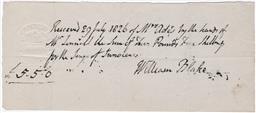 Received 29 July 1826 of Mrs Aders by the hands of
Mr Linnell the Sum of Five Pounds Five Shillings
for the Songs of Innocence
£5.5.0
William Blake